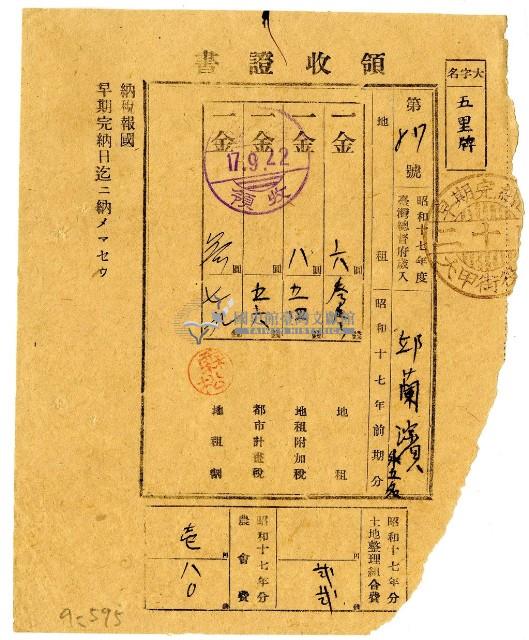 領收證書
大字名
五里牌
第 817 號
昭和十七年度
臺灣總督府歲入
地租
昭和十七年前期分
邱蘭濱
外五名
一金 六 圓
地租
一金 八 圓 五四
地租附加稅
一金 圓 五六
都市計畫稅
一金 圓
地租割
17.9.22
領收
國史館臺灣文獻館
TAIWAN HISTORICA
納稅報國
早期完納日迄ニ納メマセウ
早期完納
大甲街
昭和十七年分
土地整理組合費
弍弍
昭和十七年分
農會費
壱 八〇
95595